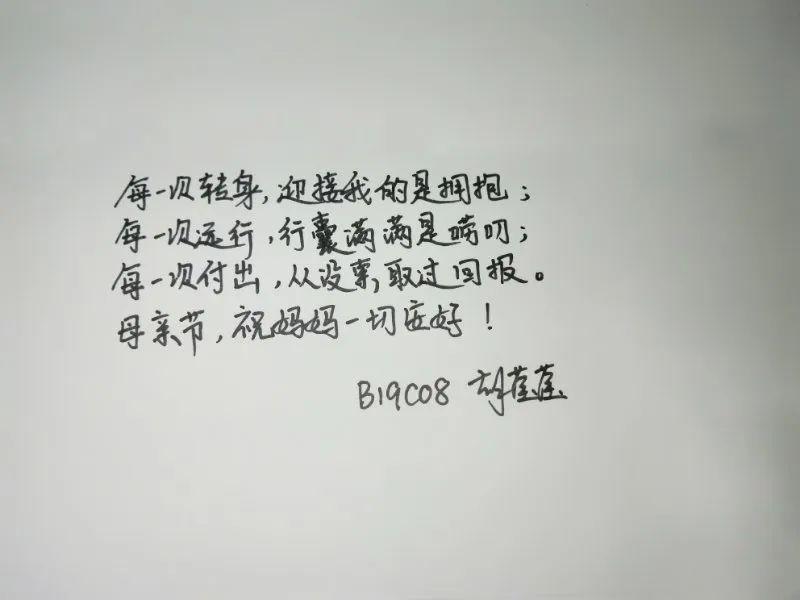 每一次转身,迎接我的是拥抱;
每一次远行,行囊满满是唠叨;
每一次付出,从没索取过回报。
母亲节,祝妈妈一切安好!
B19C08 胡莲莲